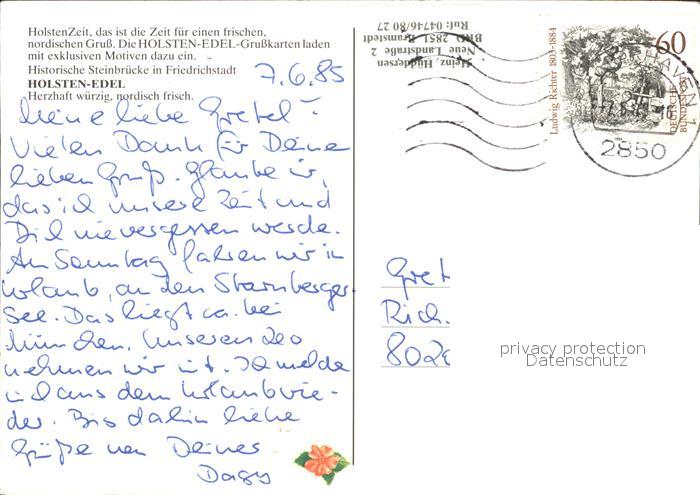 HolstenZeit, das ist die Zeit für einen frischen,
nordischen Gruß. Die HOLSTEN-EDEL-Grußkarten laden
mit exklusiven Motiven dazu ein.
Historische Steinbrücke in Friedrichstadt
HOLSTEN-EDEL
Herzhaft würzig, nordisch frisch.
7.6.85
Meine liebe Gretel!
Vielen Dank für Deine
lieben Gruß. Glaube mir,
das ich unsere Zeit und
Dich nie vergessen werde.
Am Sonntag fahren wir in
Urlaub, an den Starnberger
See. Das liegt ca. bei
München. Unseren Leo
nehmen wir mit. Ich melde
mich aus dem Urlaub wie-
der. Bis dahin liebe
Grüße von Deiner
Dagy
Heinz Huddersen
Neue Landstraße 2
BRD 2851 Bramstedt
Ruf: 04746/80 27
Ludwig Richter 1803-1884
60
DEUTSCHE
BUNDESPOST
2850
Gret
Rich.
802
privacy protection
Datenschutz